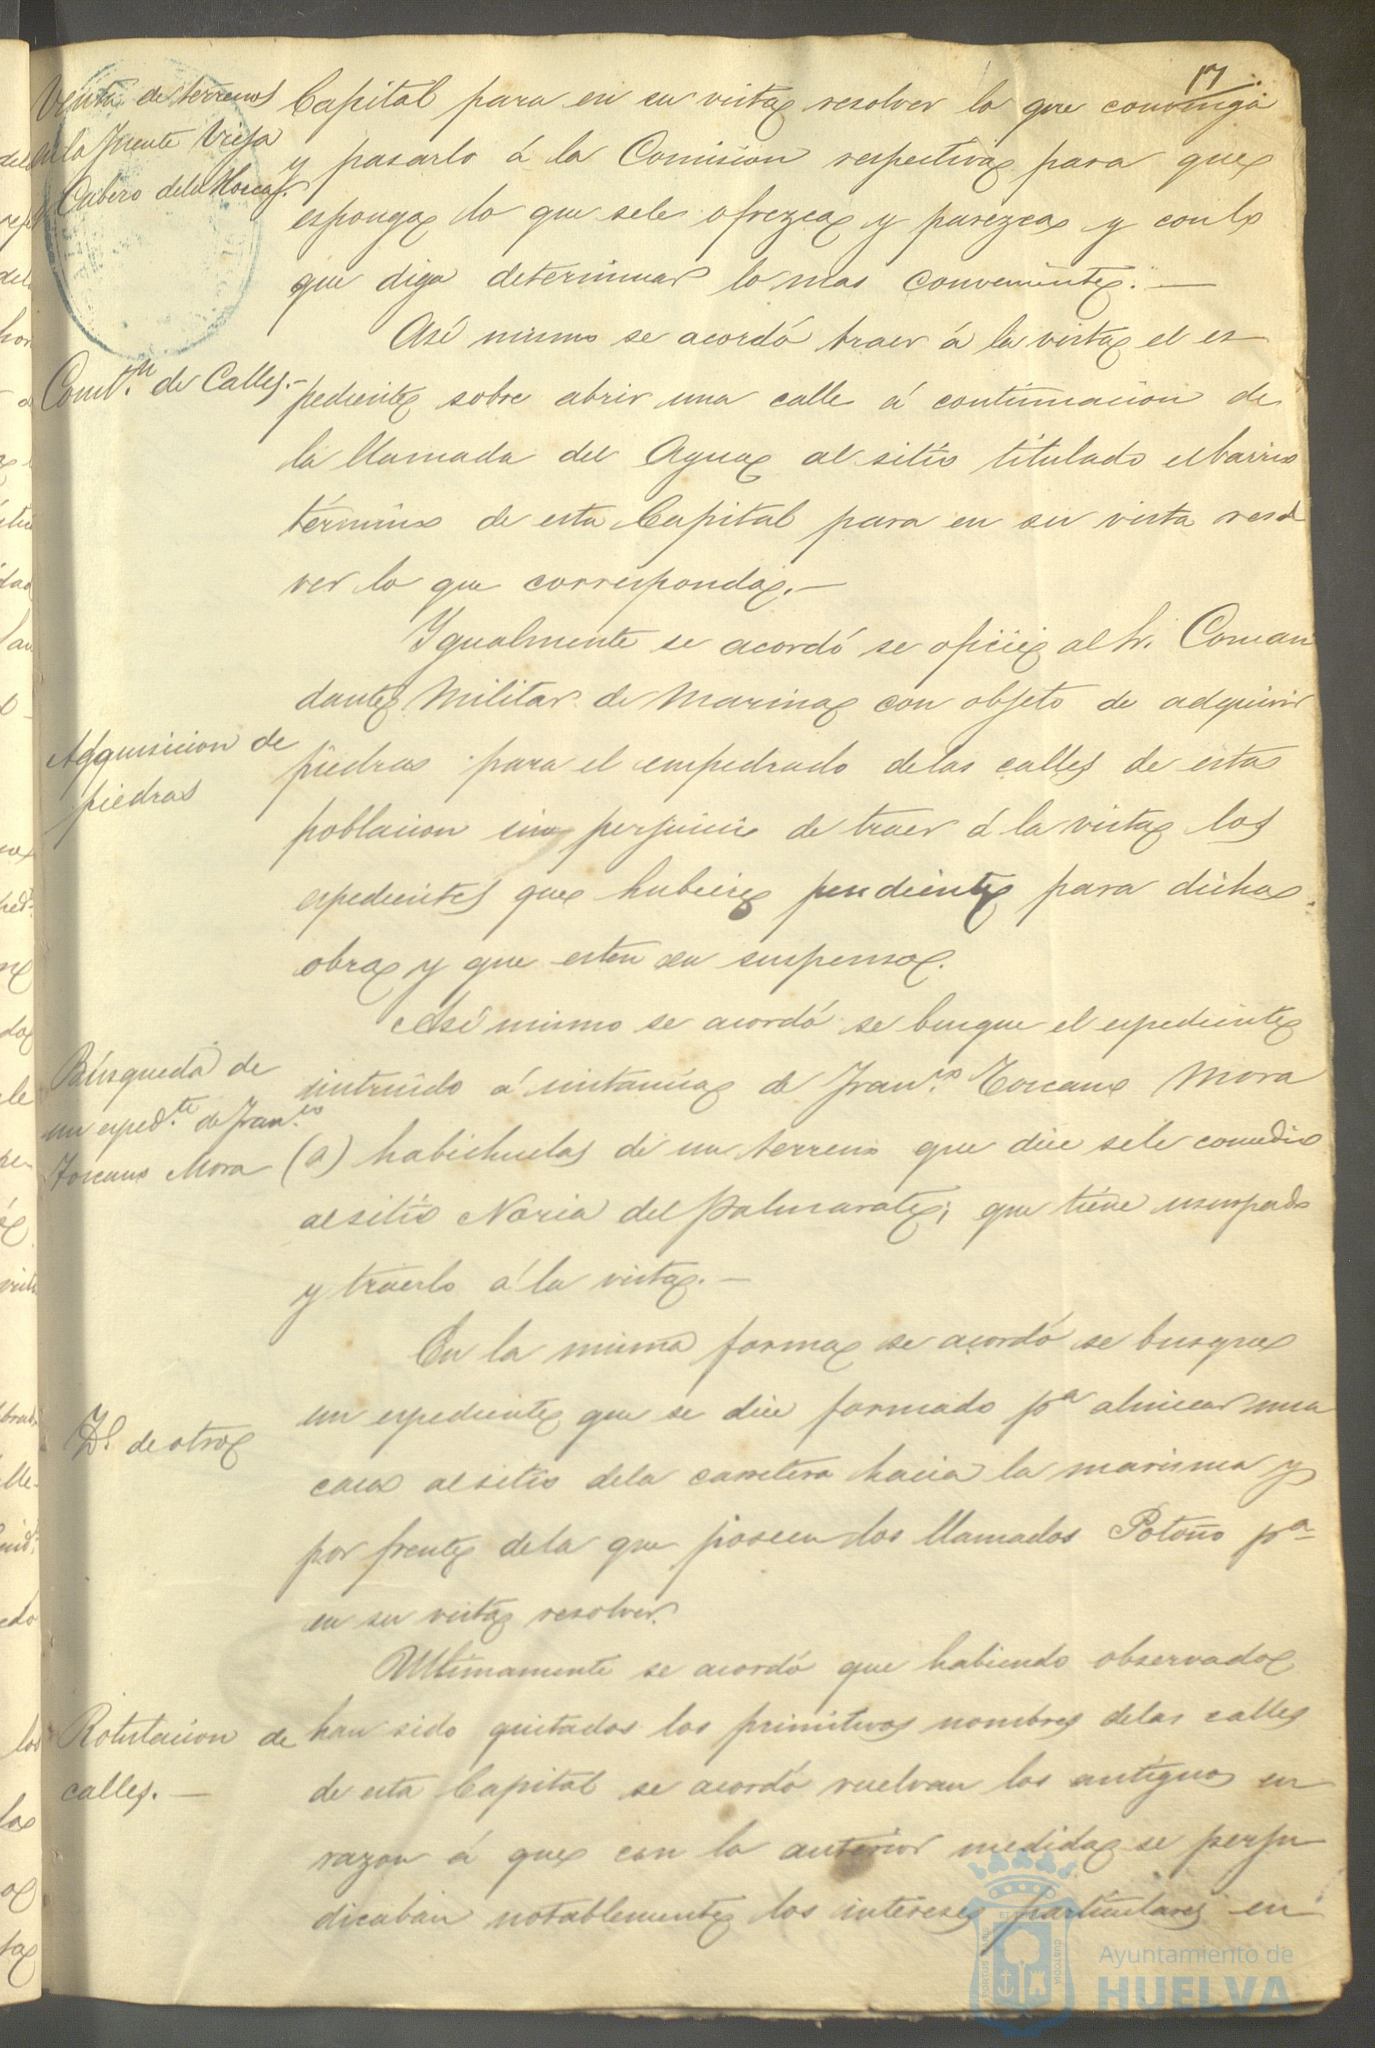 17
Venta de terrenos
a la Fuente Vieja
y Cabezo de la Horca.
Capital para en su vista resolver lo que convenga
y pasarlo á la Comision respectiva para que
esponga lo que sele ofrezca y parezca y con lo
que diga determinar lo mas conveniente.—
Así mismo se acordó traer á la vista el es
Cont.n de Calles.-
pediente sobre abrir una calle á continuacion de
la llamada del Agua al sitio titulado el barrio
término de esta Capital para en su vista resol
ver lo que corresponda.—
Ygualmente se acordó se oficie al Sr. Coman
dante Militar de Marina con objeto de adquirir
Adquisicion de
piedras
piedras para el empedrado delas calles de esta
poblacion sin perjuicio de traer á la vista los
espedientes que hubiere pendiente para dicha
obra y que esten en suspenso.
Así mismo se acordó se busque el espediente
Búsqueda de
un esped.te de Fran.co
Toscano Mora
instruido á instancia de Fran.co Toscano Mora
(a) habichuelas de un terreno que dice sele concedio
al sitio Noria del Palmarate; que tiene usurpado
y traerlo á la vista.—
En la misma forma se acordó se busque
Yd. de otro
un espediente que se dice formado pa alinear una
casa al sitio dela carretera hacia la marisma y
por frente dela que poseen los llamados Potoño pa
en su vista resolver.
Ultimamente se acordó que habiendo observado
Rotulacion de
calles.—
han sido quitados los primitivos nombres delas calles
de esta Capital se acordó vuelvan los antiguos en
razon á que con la anterior medida se perju
dicaban notablemente los intereses particulares en
Ayuntamiento de
HUELVA